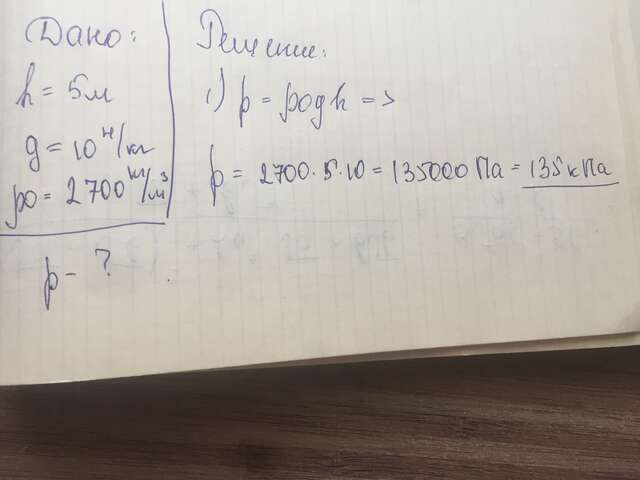 Дано:
h = 5м
g = 10 н/кг
ро = 2700 кг/м³
p - ?
Решение:
1) p = роgh =>
p = 2700·5·10 = 135000 Па = 135 кПа